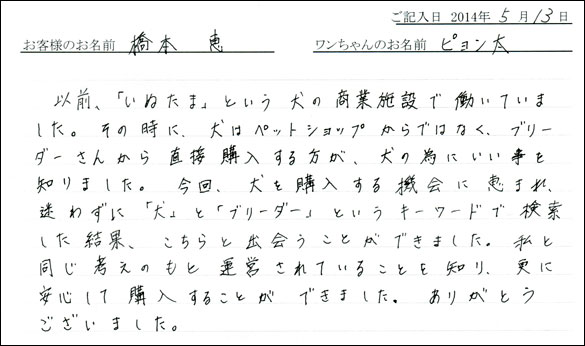 ご記入日 2014年 5月13日
お客様のお名前 橋本 恵 ワンちゃんのお名前 ピョン太
以前、「いぬたま」という犬の商業施設で働いていま
した。その時に、犬はペットショップからではなく、ブリー
ダーさんから直接購入する方が、犬の為にいい事を
知りました。今回、犬を購入する機会に恵まれ、
迷わずに「犬」と「ブリーダー」というキーワードで検索
した結果、こちらと出会うことができました。私と
同じ考えのもと運営されていることを知り、更に
安心して購入することができました。ありがとう
ございました。